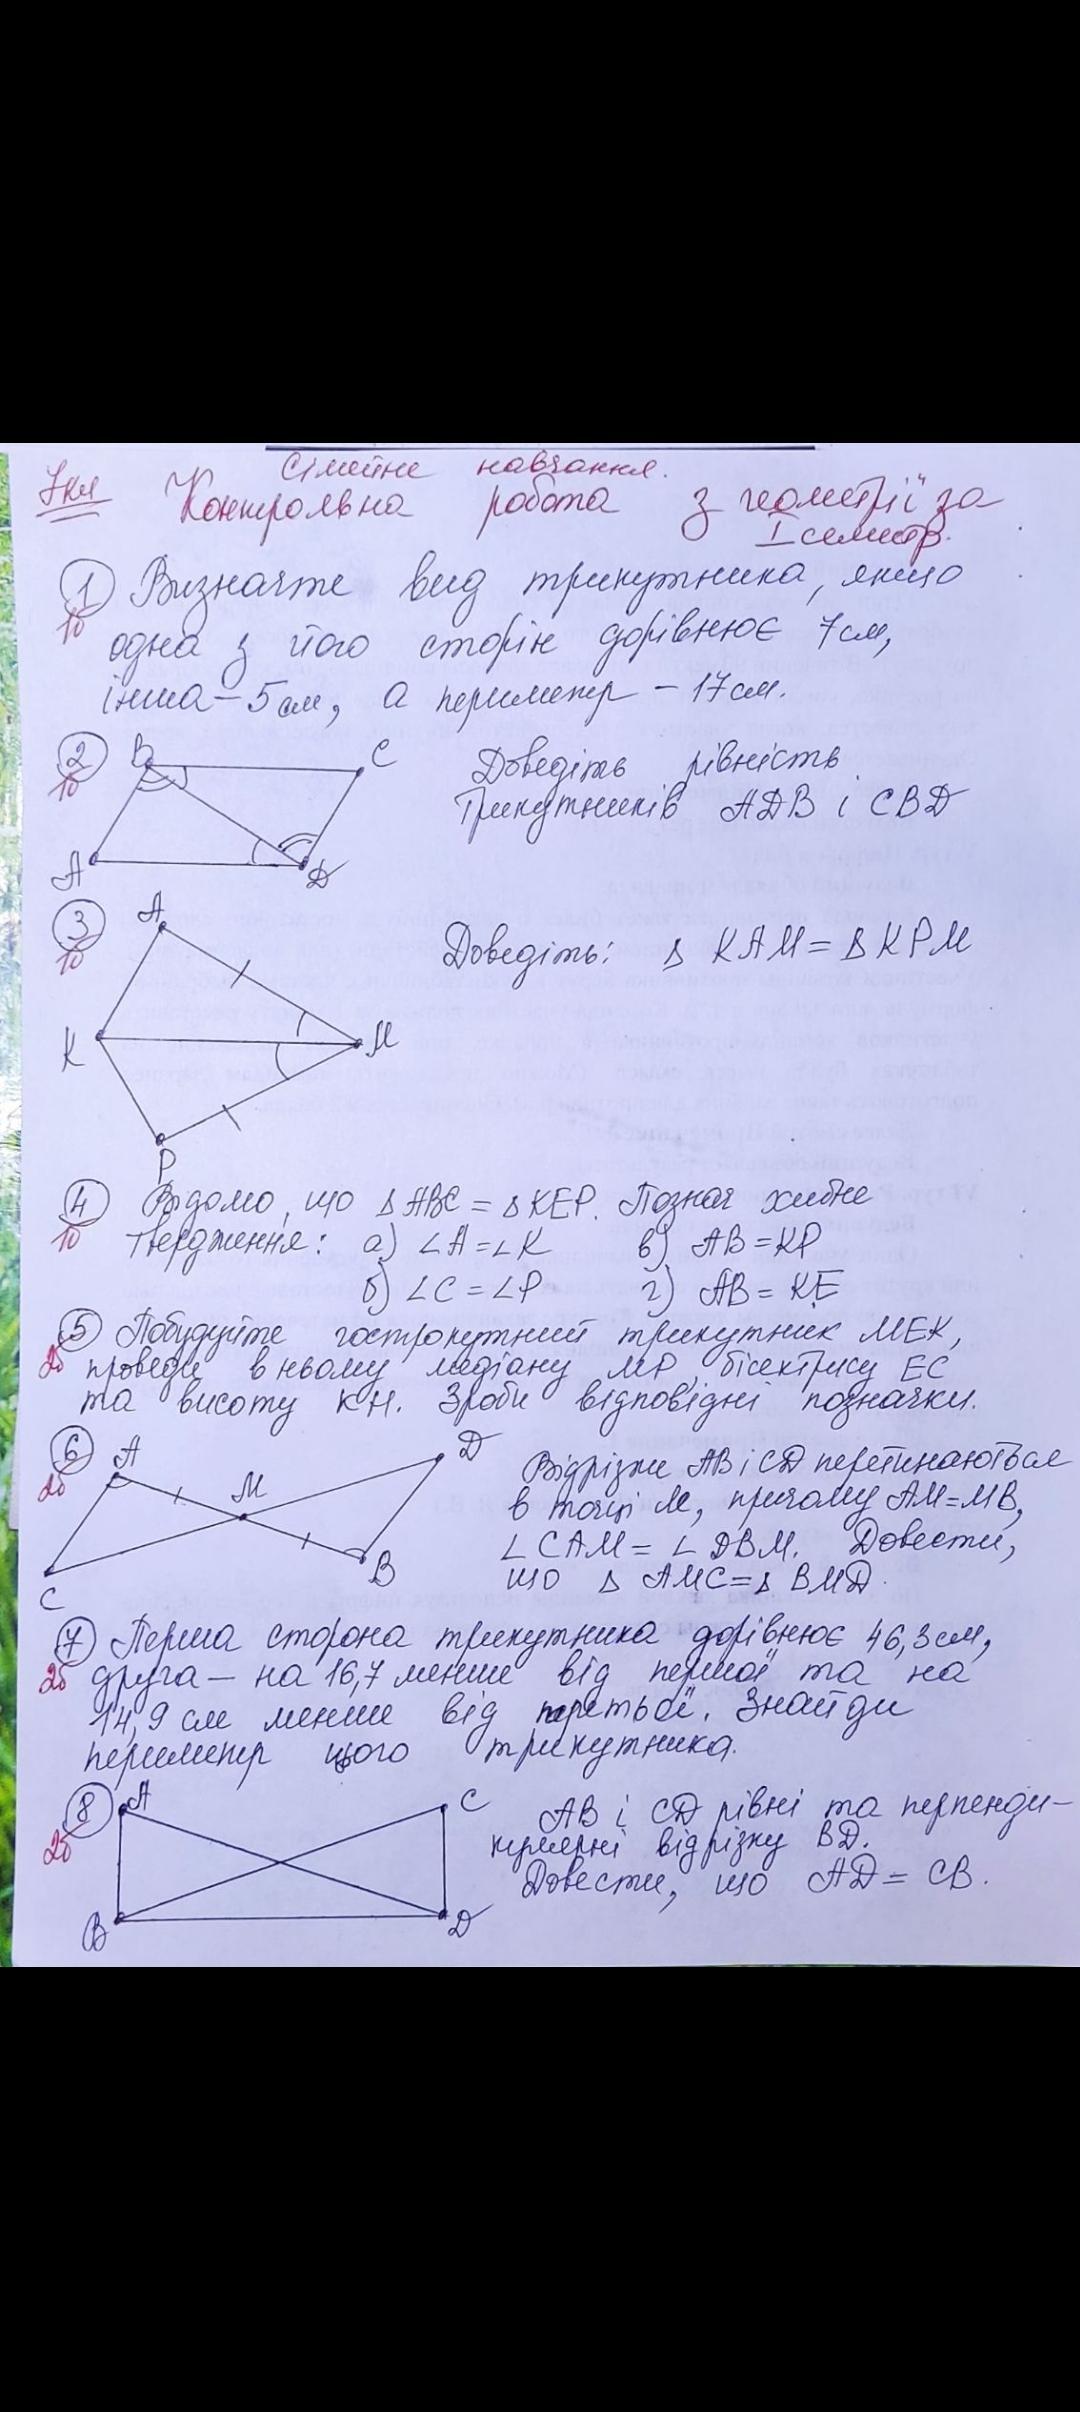 Сімейне навчання.
7кл Контрольна робота з геометрії за
I семестр.
1 Визначте вид трикутника, якщо
1б одна з його сторін дорівнює 7см,
інша - 5см, а периметр - 17см.
2 B C Доведіть рівність
1б трикутників ADB і CBD
A D
3 A Доведіть: Δ KAM = Δ KPM
1б
K M
P
4 Відомо, що Δ ABC = Δ KEP. Познач хибне
1б твердження: а) ∠A = ∠K в) AB = KP
б) ∠C = ∠P г) AB = KE
5 Побудуйте гострокутний трикутник MEK,
2б проведи в ньому медіану MP, бісектрису EC
та висоту KH. Зроби відповідні позначки.
6 A M D Відрізки AB і CD перетинаються
2б в точці M, причому AM = MB,
C B ∠CAM = ∠DBM. Довести,
що Δ AMC = Δ BMD.
7 Перша сторона трикутника дорівнює 46,3см,
2б друга - на 16,7 менше від першої та на
14,9 см менше від третьої. Знайди
периметр цього трикутника.
8 A C AB і CD рівні та перпенди-
2б кулярні відрізку BD.
B D Довести, що AD = CB.